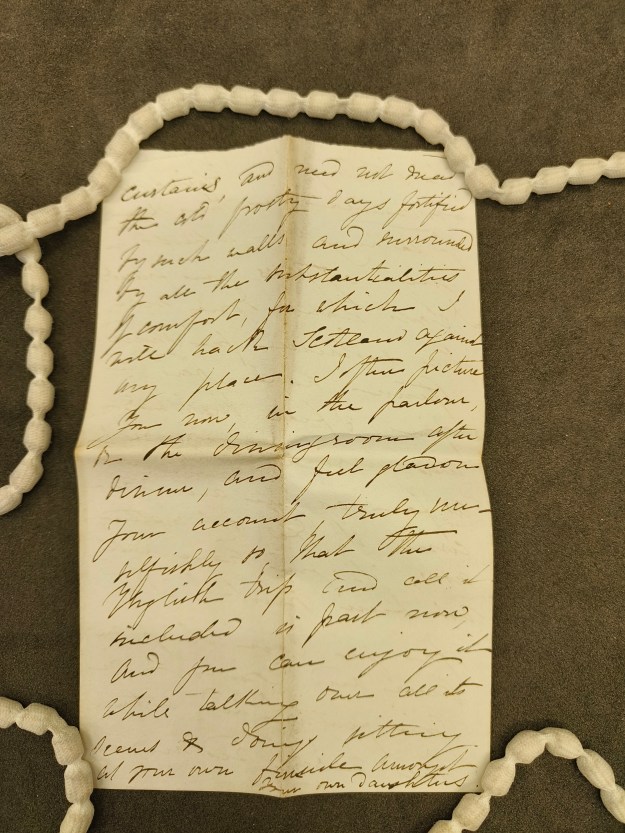 curtains, and need not dread
the cold frosty days fortified
by such walls and surrounded
by all the substantialities
of comfort, for which I
will back Scotland against
any place. I often picture
you now, in the parlour,
or the diningroom after
dinner, and feel glad on
your account truly un-
selfishly so that the
English trip and all it
included is past now,
and you can enjoy it
while talking over all its
scenes & doings sitting
at your own fireside amongst
your own daughters.